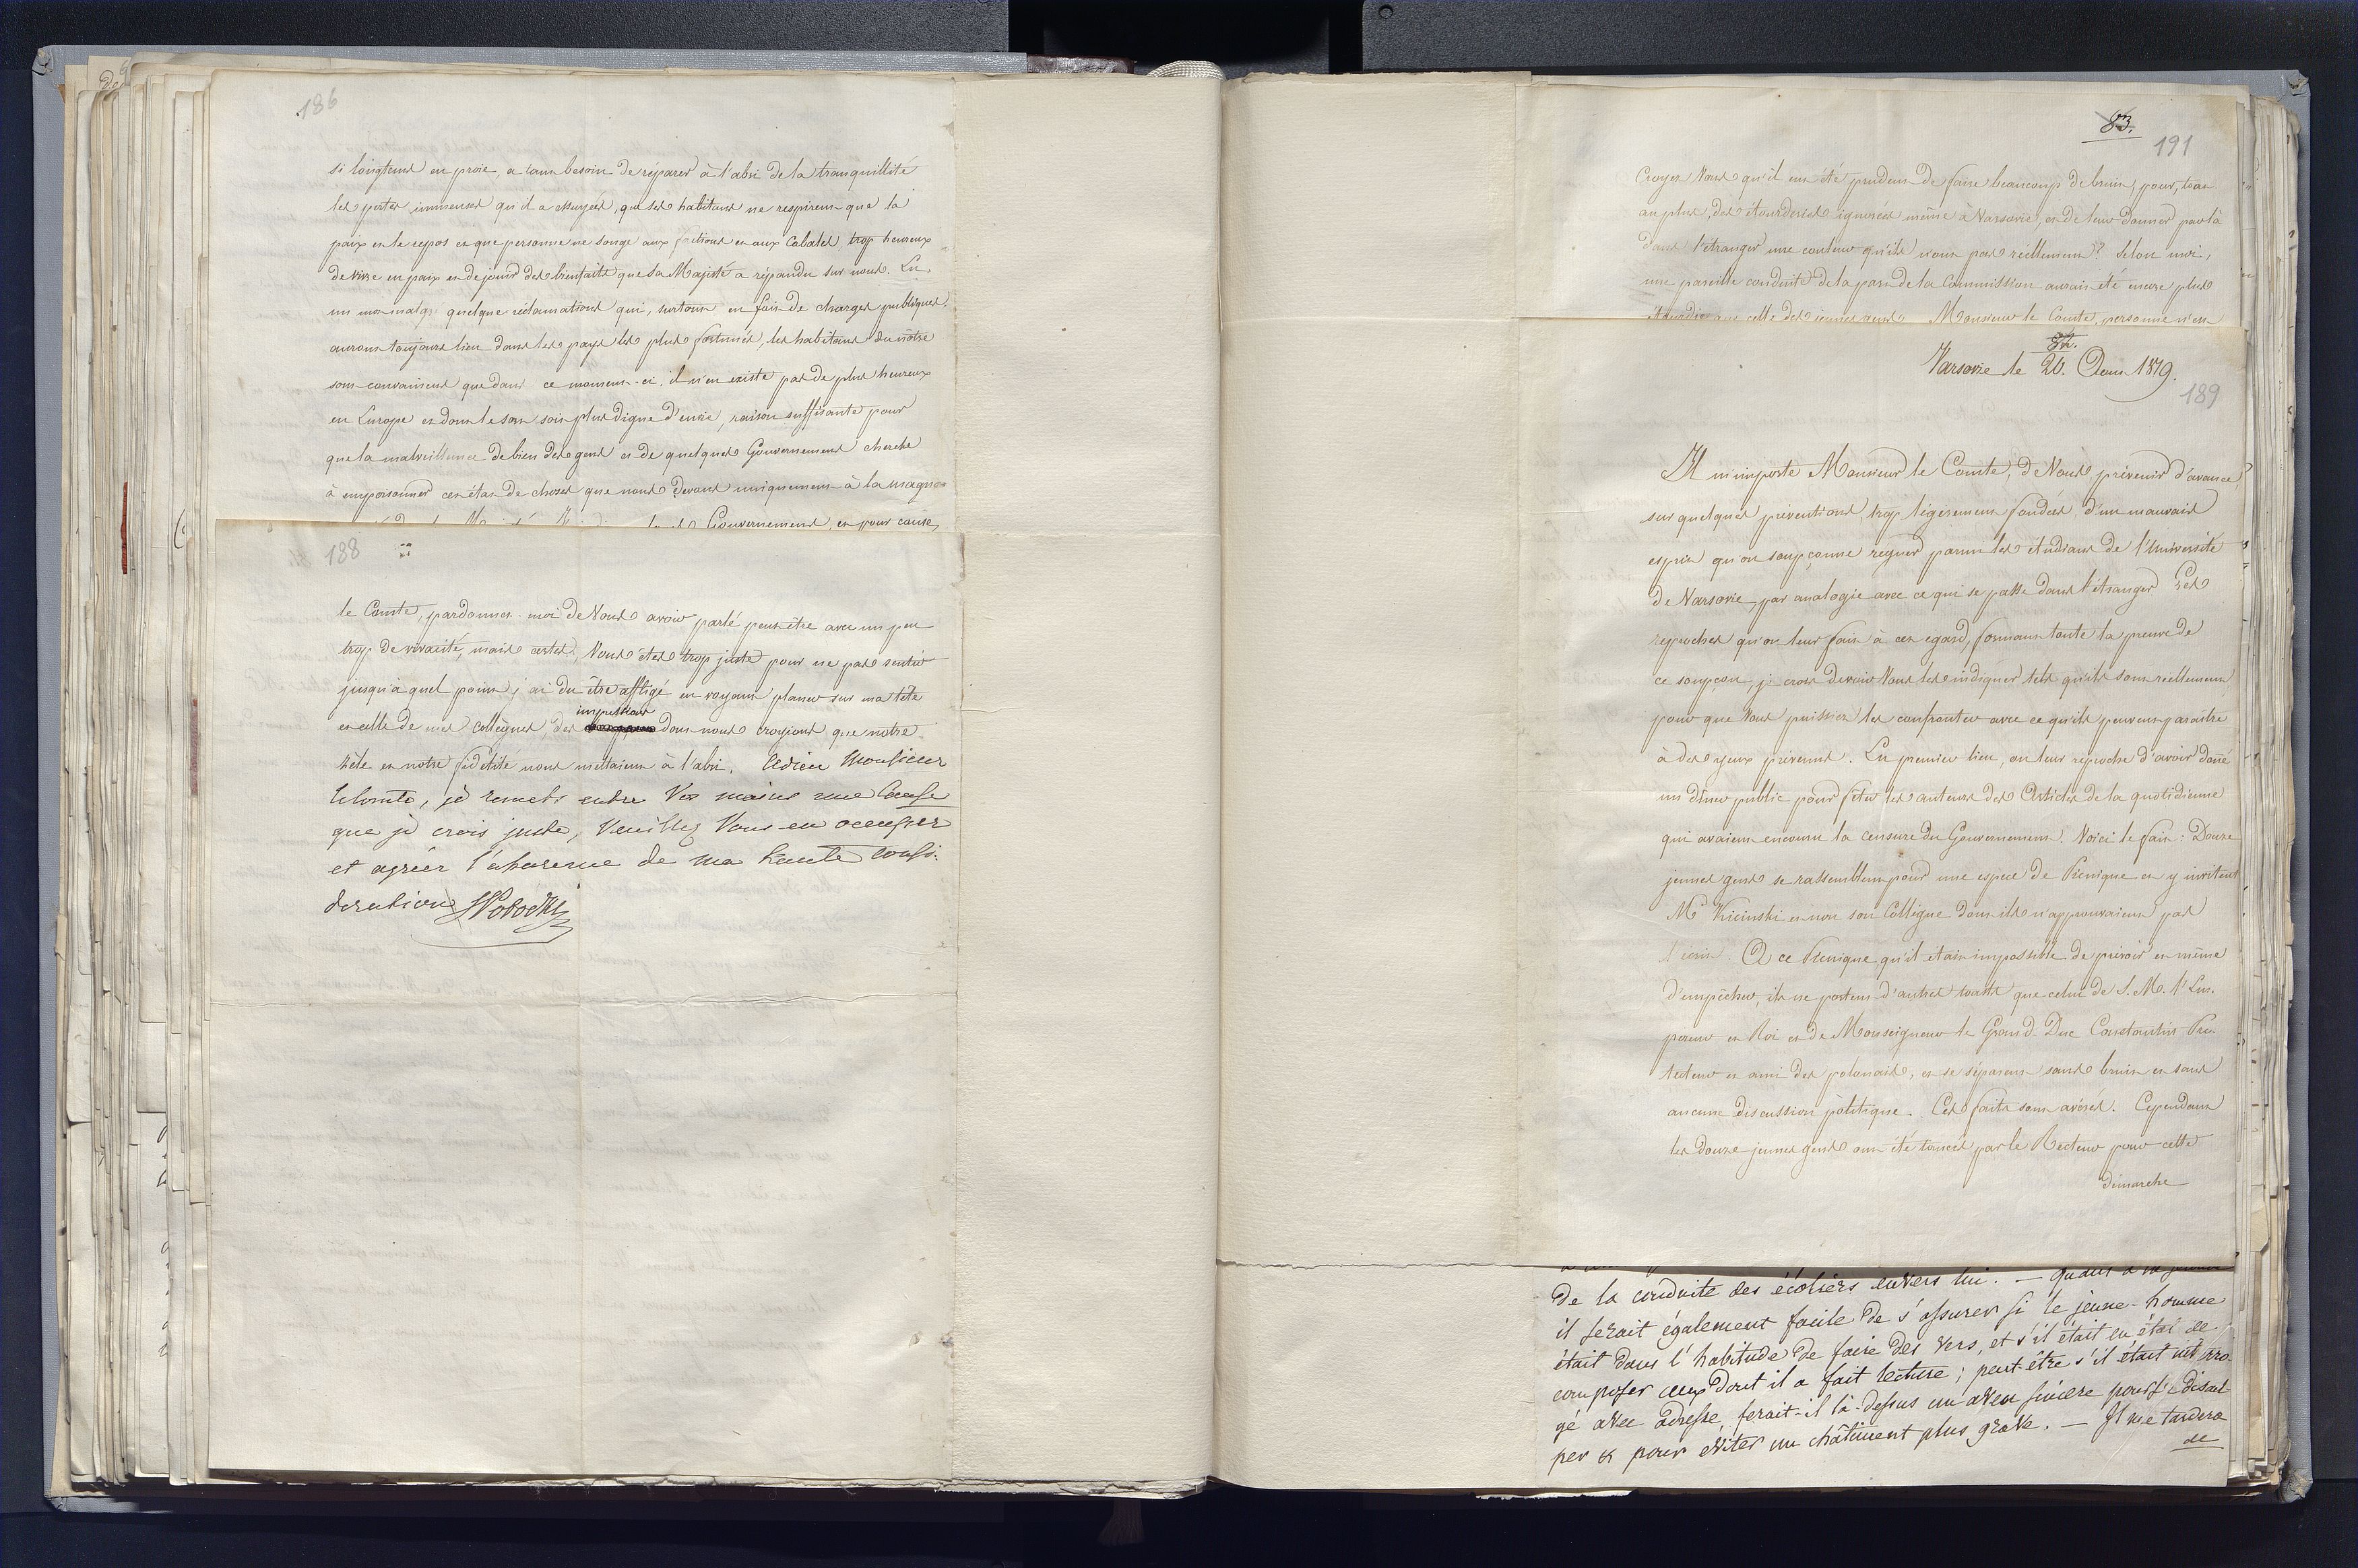 186
si longtems en proie, a tant besoin de réparer à l'abri de la tranquillité
les pertes immenses qu'il a essuyées, que ses habitans ne respirent que la
paix et le repos et que personne ne songe aux factions et aux Cabales, trop heureux
de vivre en paix et de jouir des bienfaits que Sa Majesté a répandu sur nous. En
un mot malgré quelque réclamations qui, surtout en fait de charges publiques,
auront toujours lieu dans les pays les plus fortunés, les habitans du nôtre
sont convaincus que dans ce moment-ci, il n'en existe pas de plus heureux
en Europe et dont le sort soit plus digne d'envie, raison suffisante pour
que la malveillance de bien des gens et de quelques Gouvernemens cherche
à empoisonner cet état de choses que nous devons uniquement à la magna
Gouvernemens, et pour cause,
188
le Comte, pardonnez-moi de Vous avoir parlé peut être avec un peu
trop de vivacité, mais certes, Vous êtes trop juste pour ne pas sentir
jusqu'à quel point j'ai du être affligé en voyant planer sur ma tête
et celle de mes collègues, des
impressions
dont nous croyions que notre
zèle et notre fidélité nous mettaient à l'abri. Adieu Monsieur
le Comte, je remets entre Vos mains une Cause
que je crois juste, Veuillez Vous en occuper
et agréer l'assurance de ma haute consi-
deration SPotocki
83.
191
Croyez Vous qu'il eut été prudent de faire beaucoup de bruit, pour, tout
au plus, des étourderies ignorées même à Varsovie, et de leur donner par là
dans l'étranger une couleur qu'ils n'ont pas réellement? Selon moi,
une pareille conduite de la part de la Commission aurait été encore plus
étourdie que celle des jeunes gens. Monsieur le Comte, personne n'est
82.
Varsovie le 20. Aout 1819.
189
Il m'importe Monsieur le Comte, de Vous prévenir d'avance,
sur quelques préventions, trop légerement fondées, d'un mauvais
esprit qu'on soupçonne regner parmi les étudians de l'Université
de Varsovie, par analogie avec ce qui se passe dans l'étranger. Les
reproches qu'on leur fait à cet egard, formant toute la preuve de
ce soupçon, je crois devoir Vous les indiquer tels qu'ils sont reellement
pour que Vous puissiez les confronter avec ce qu'ils peuvent paraître
à des yeux prévenus. En premier lieu, on leur reproche d'avoir donné
un dîner public pour fêter les auteurs des Articles de la quotidienne
qui avaient encouru la censure du Gouvernement. Voici le fait: Douze
jeunes gens se rassemblent pour une espece de Picnique et y invitent
Mr Kicinski et non son Collègue dont ils n'approuvaient pas
l'écrit. A ce Picnique qu'il etait impossible de prévoir et même
d'empêcher, ils ne portent d'autres toasts que celui de S. M. l'Em-
pereur et Roi et de Monseigneur le Grand-Duc Constantin Pro-
tecteur et ami des polonais, et se séparent sans bruit et sans
aucune discussion politique. Ces faits sont avérés. Cependant
les douze jeunes gens ont été tancés par le Recteur pour cette
démarche
de la conduite des écoliers envers lui. — Quant à
il serait également facile de s'assurer si le jeune-homme
était dans l'habitude de faire des vers, et s'il était en état de
composer ceux dont il a fait lecture; peut-être s'il était interro-
gé avec adresse, ferait-il là-dessus un aveu sincère pour se discul
per & pour éviter un châtiment plus grave. — Il me tardera
de